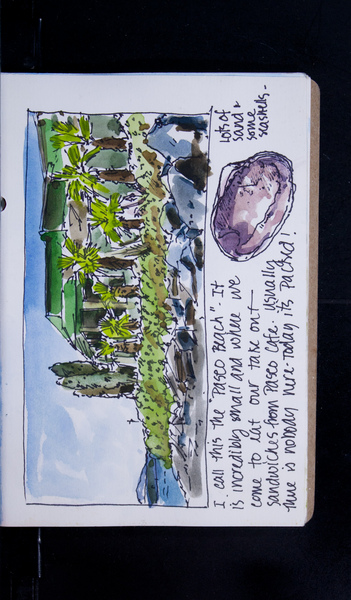 I call this the "PASEO BEACH". It
is incredibly small and where we
come to eat our take out
sandwiches from Paseo Cafe. Usually
there is nobody here - today its packed!
Lots of
sand &
some
seashells -